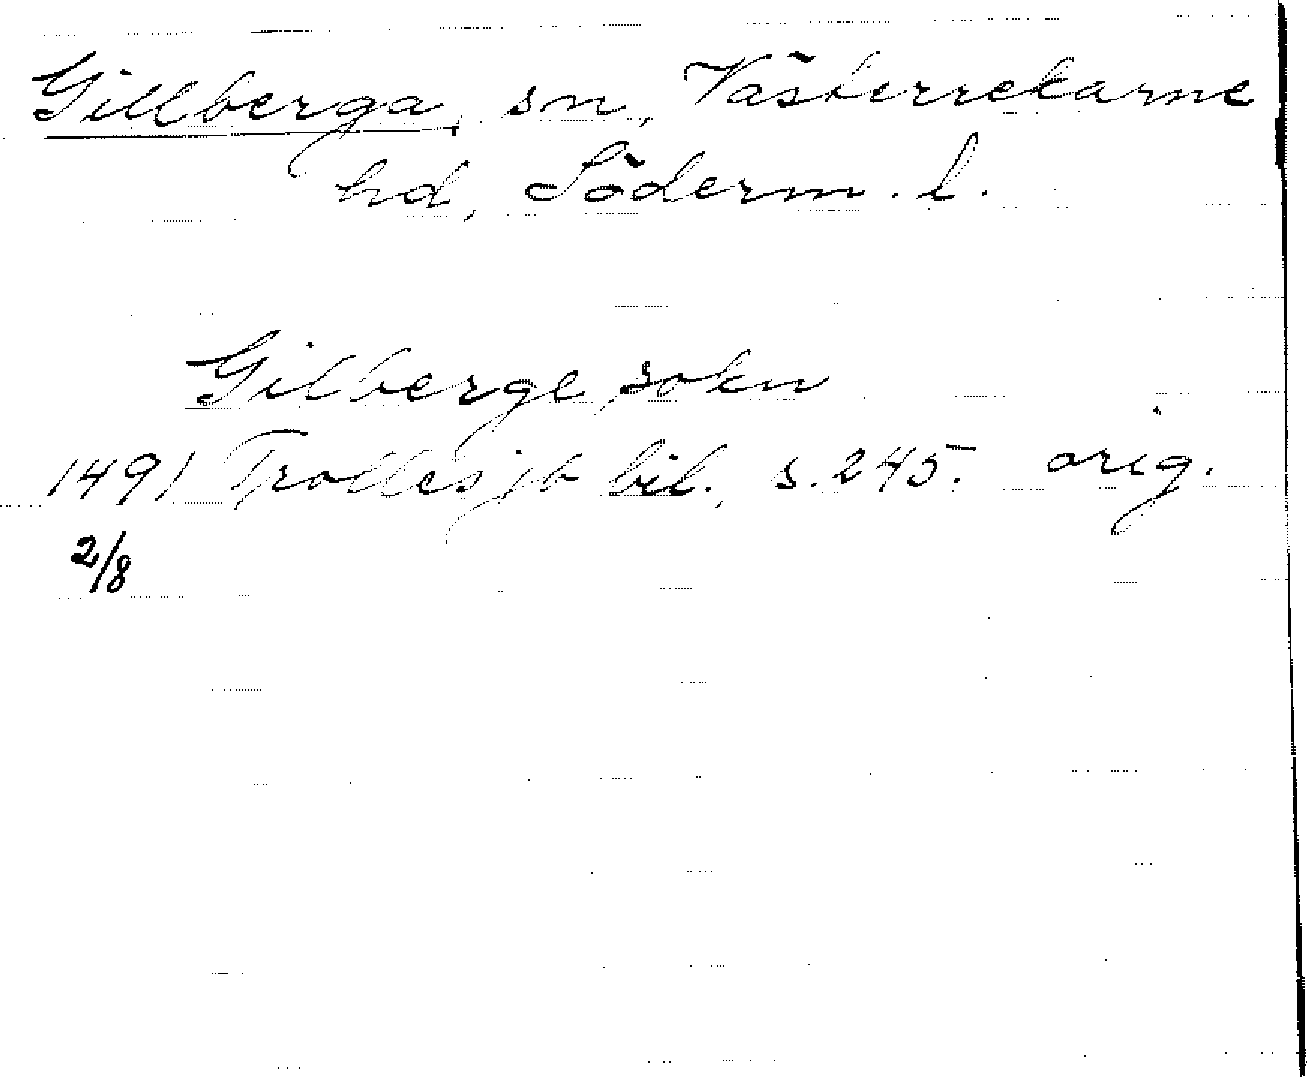 Gillberga, sn, Västerrekarne
hd, Söderm. l.
Gilberge sokn
1491 Trolles jb bil., s. 245. orig.
2/8